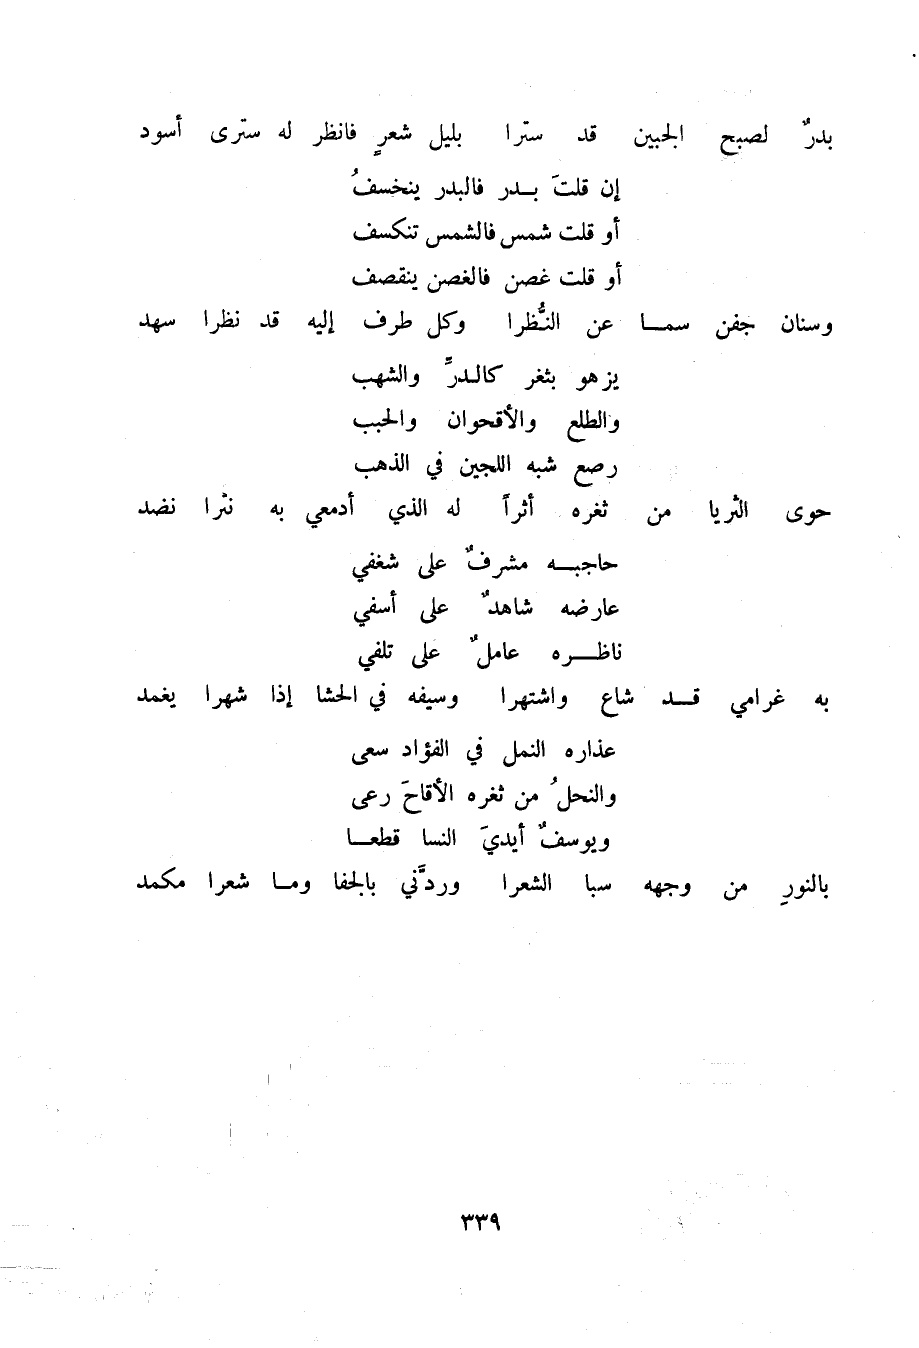 بدرٌ لصبح الجبين قد ستّرا بليل شعرٍ فانظر له ستّرى أسود
إن قلتَ بـدر فالبدر ينخسفُ
أو قلت شمس فالشمس تنكسف
أو قلت غصن فالغصن ينقصف
وسنان جفن سمـا عن النُّظرا وكل طرف إليه قد نظرا سهد
يزهو بثغر كالـدرِّ والشهب
والطلع والأقحوان والحبب
رصع شبه اللجين في الذهب
حوى الثريا من ثغره أثراً له الذي أدمعي به نثرا نضد
حاجبـه مشرفٌ على شغفي
عارضه شاهدٌ على أسفي
ناظـره عاملٌ على تلفي
به غرامي قـد شاع واشتهرا وسيفه في الحشا إذا شهرا يغمد
عذاره النمل في الفؤاد سعى
والنحلُ من ثغره الأقاحَ رعى
ويوسفٌ أيديَ النسا قطعـا
بالنورِ من وجهه سبا الشعرا وردَّني بالجفا ومـا شعرا مكمد
٣٣٩